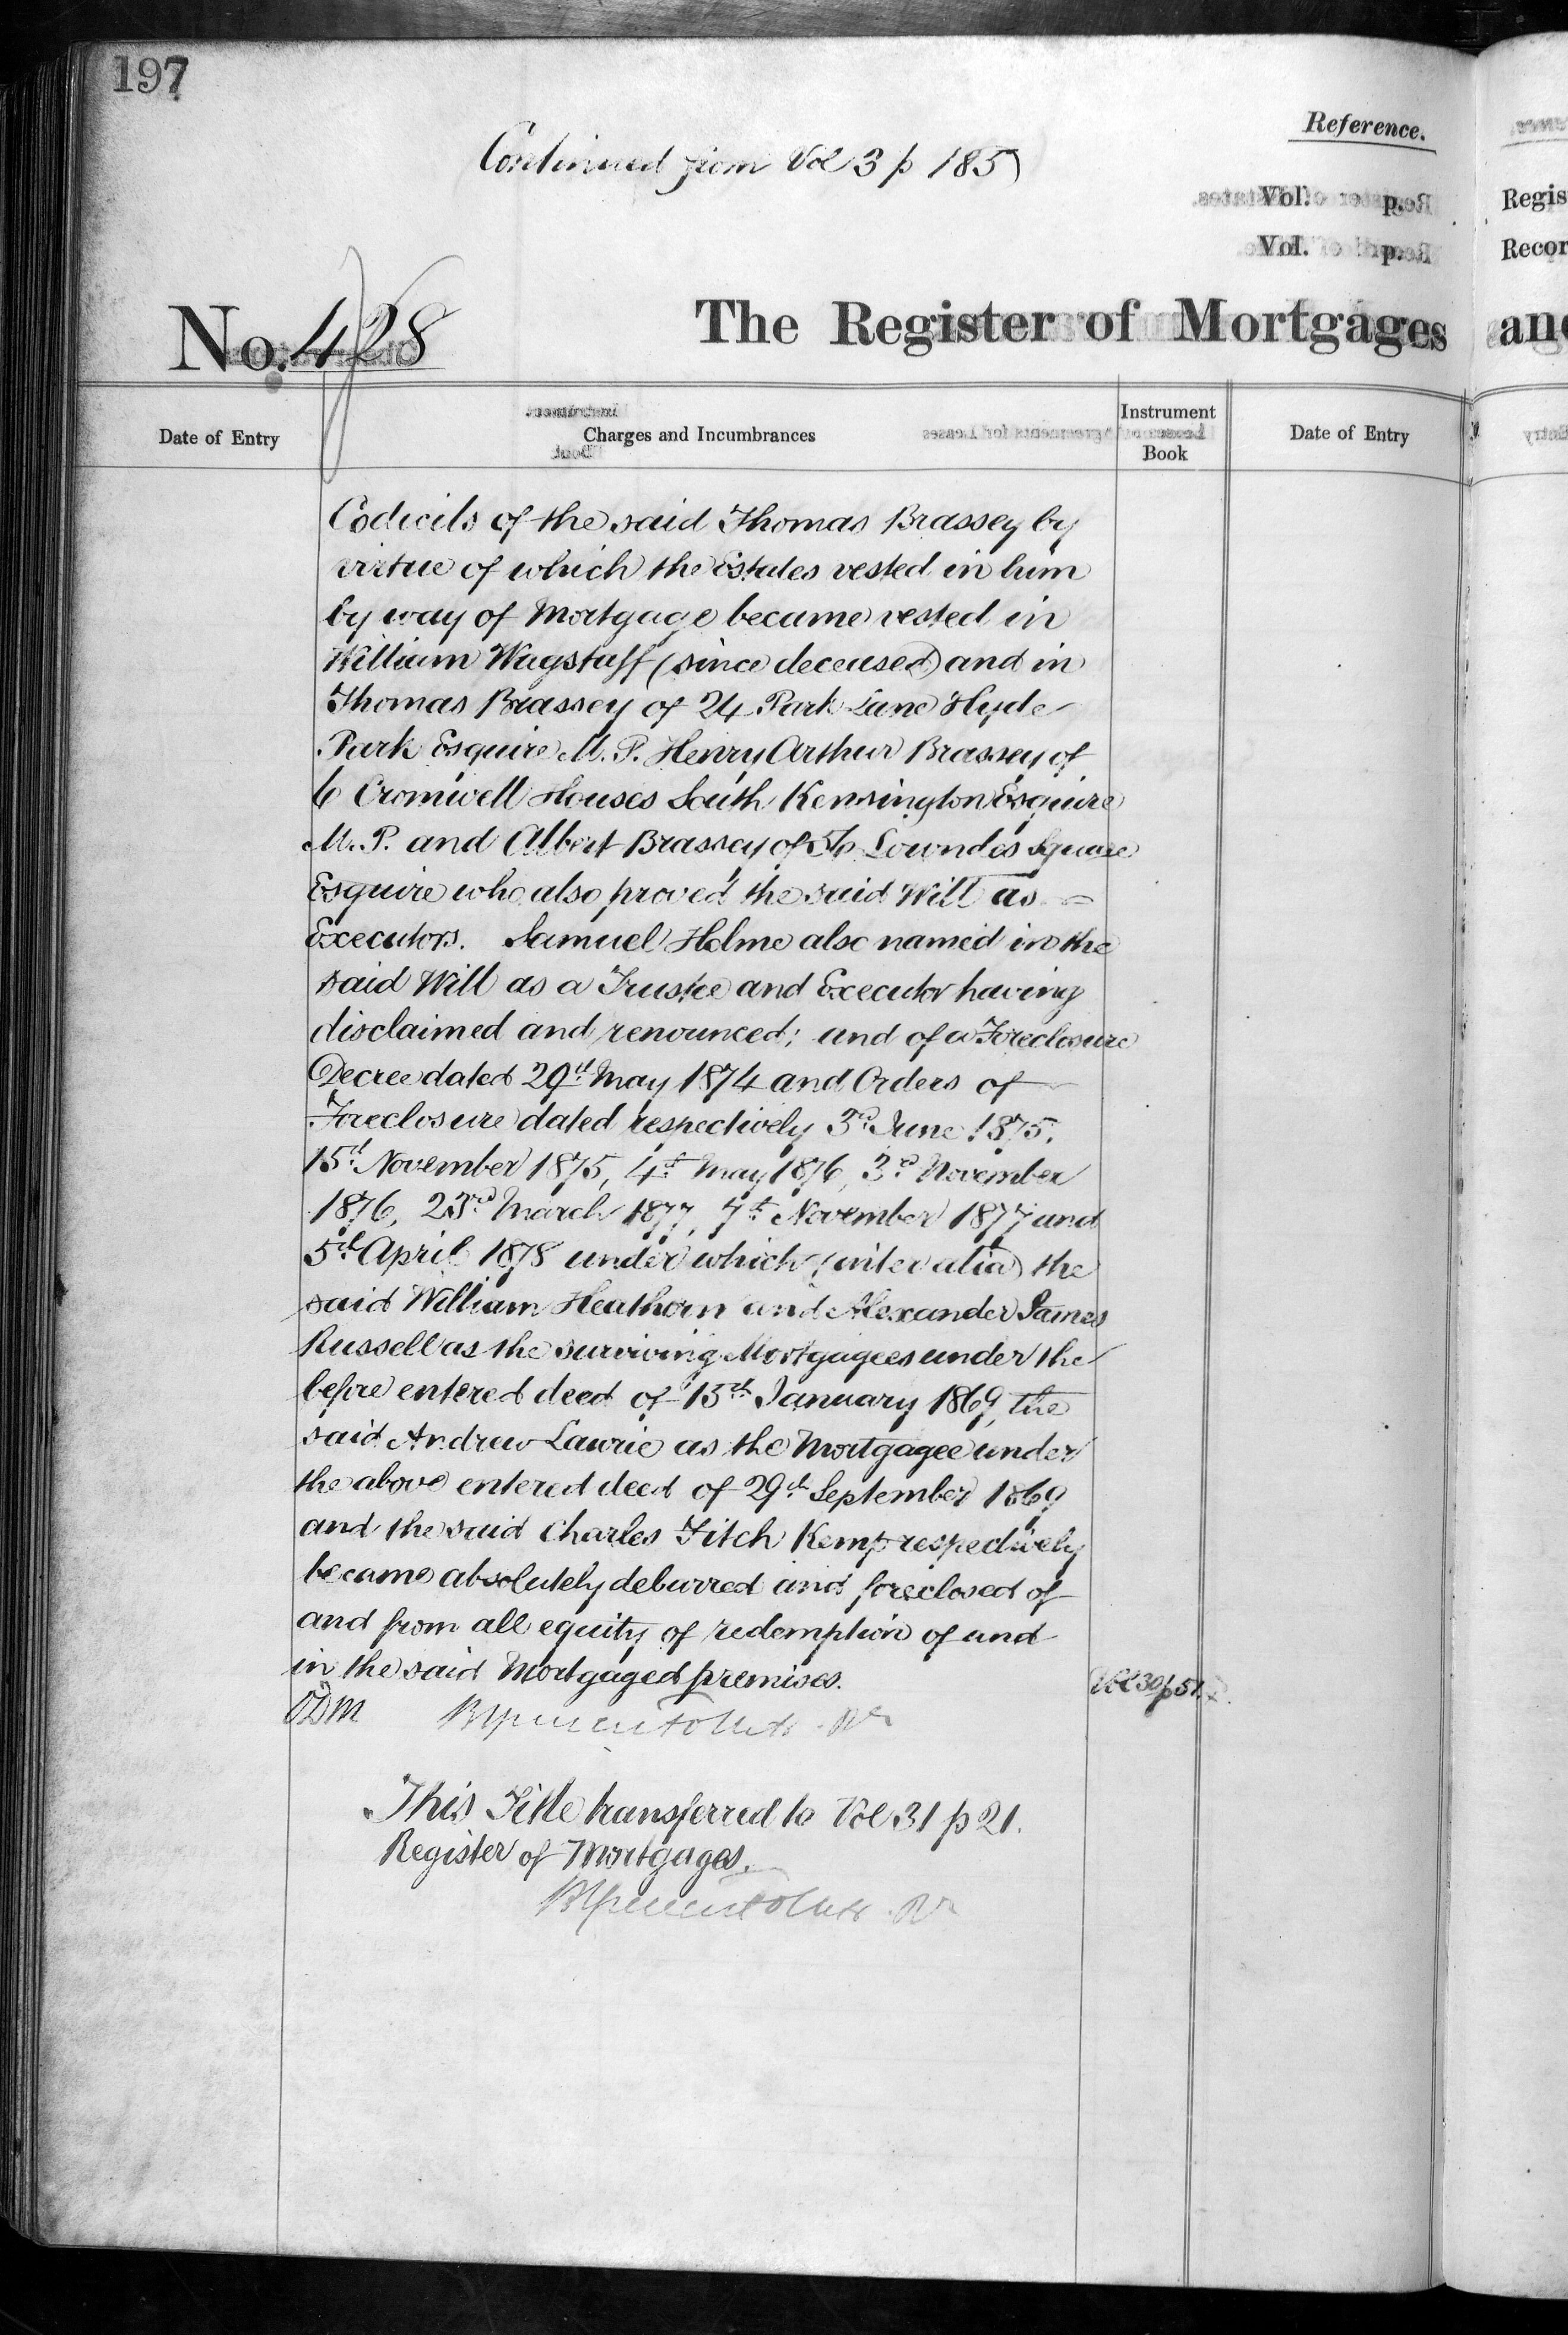 197
Continued from Vol 3 p 185
Reference.
Vol. p.
Vol. p.
Regis
Recor
No. 428
The Register of Mortgages
and
Date of Entry
Charges and Incumbrances
Instrument
Book
Date of Entry
Codicils of the said Thomas Brassey by
virtue of which the Estates vested in him
by way of Mortgage became vested in
William Wagstaff (since deceased) and in
Thomas Brassey of 24 Park Lane Hyde
Park Esquire M.P. Henry Arthur Brassey of
6 Cromwell Houses South Kensington Esquire
M.P. and Albert Brassey of 56 Lowndes Square
Esquire who also proved the said Will as
Executors. Samuel Holme also named in the
said Will as a Trustee and Executor having
disclaimed and renounced; and of a Foreclosure
Decree dated 29th May 1874 and Orders of
Foreclosure dated respectively 3rd June 1875,
15th November 1875, 4th May 1876, 3rd November
1876, 23rd March 1877, 7th November 1877 and
5th April 1878 under which (inter alia) the
said William Heathorn and Alexander James
Russell as the surviving Mortgagees under the
before entered deed of 15th January 1869, the
said Andrew Lawrie as the Mortgagee under
the above entered deed of 29th September 1869
and the said Charles Fitch Kemp respectively
became absolutely debarred and foreclosed of
and from all equity of redemption of and
in the said Mortgaged premises.
Vol 30 p 51
ODM
This Title transferred to Vol 31 p 21.
Register of Mortgages.